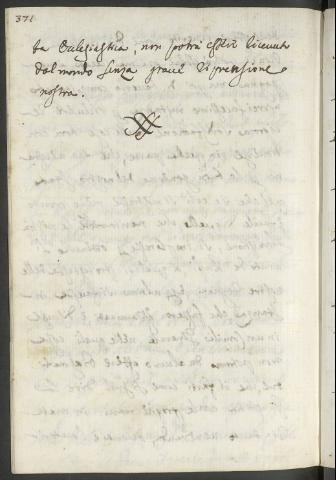 371
ta Eclesiastica, non potrà esser riceuuta
dal mondo senza graue riprensione
nostra.